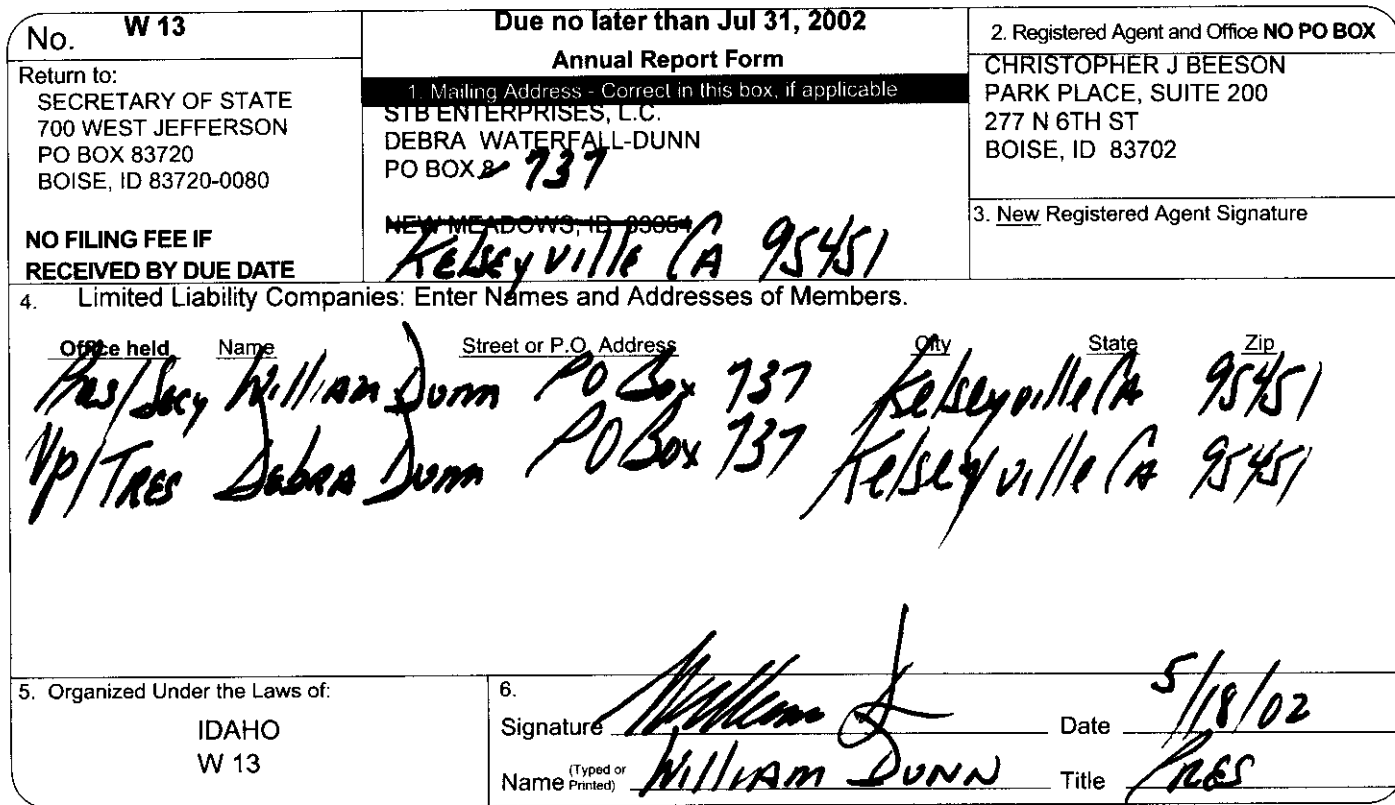 No. W 13
Return to:
SECRETARY OF STATE
700 WEST JEFFERSON
PO BOX 83720
BOISE, ID 83720-0080
NO FILING FEE IF
RECEIVED BY DUE DATE
Due no later than Jul 31, 2002
Annual Report Form
1. Mailing Address - Correct in this box, if applicable
STB ENTERPRISES, L.C.
DEBRA WATERFALL-DUNN
PO BOX 8 737
NEW MEADOWS, ID 83654
Kelseyville CA 95451
2. Registered Agent and Office NO PO BOX
CHRISTOPHER J BEESON
PARK PLACE, SUITE 200
277 N 6TH ST
BOISE, ID 83702
3. New Registered Agent Signature
4. Limited Liability Companies: Enter Names and Addresses of Members.
Office held Name Street or P.O. Address City State Zip
Pres/Secy William Dunn PO Box 737 Kelseyville CA 95451
Vp/TRES Debra Dunn PO Box 737 Kelseyville CA 95451
5. Organized Under the Laws of:
IDAHO
W 13
6.
Signature William D Date 5/18/02
Name (Typed or Printed) William DUNN Title PRES